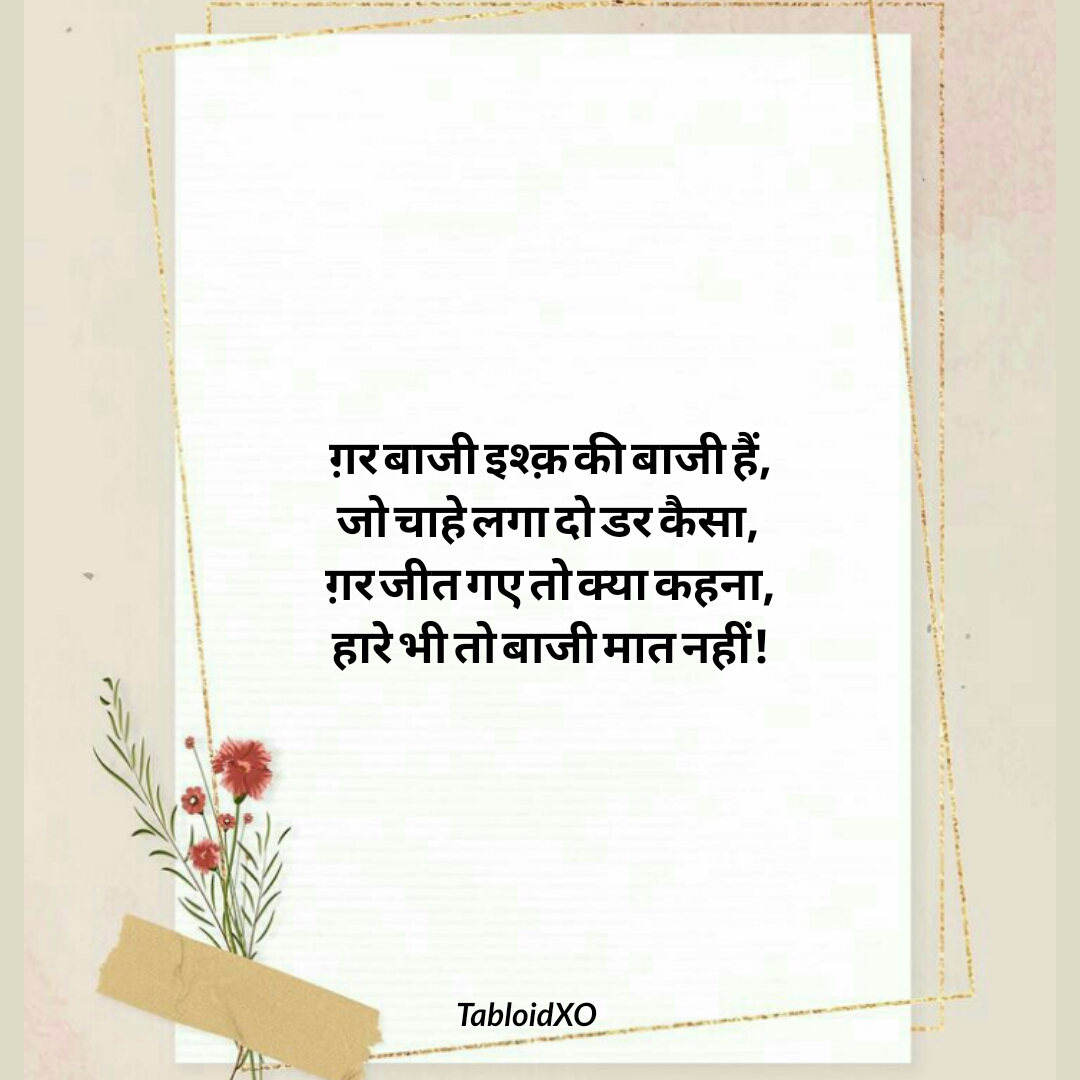 ग़र बाजी इश्क़ की बाजी हैं,
जो चाहे लगा दो डर कैसा,
ग़र जीत गए तो क्या कहना,
हारे भी तो बाजी मात नहीं!
TabloidXO